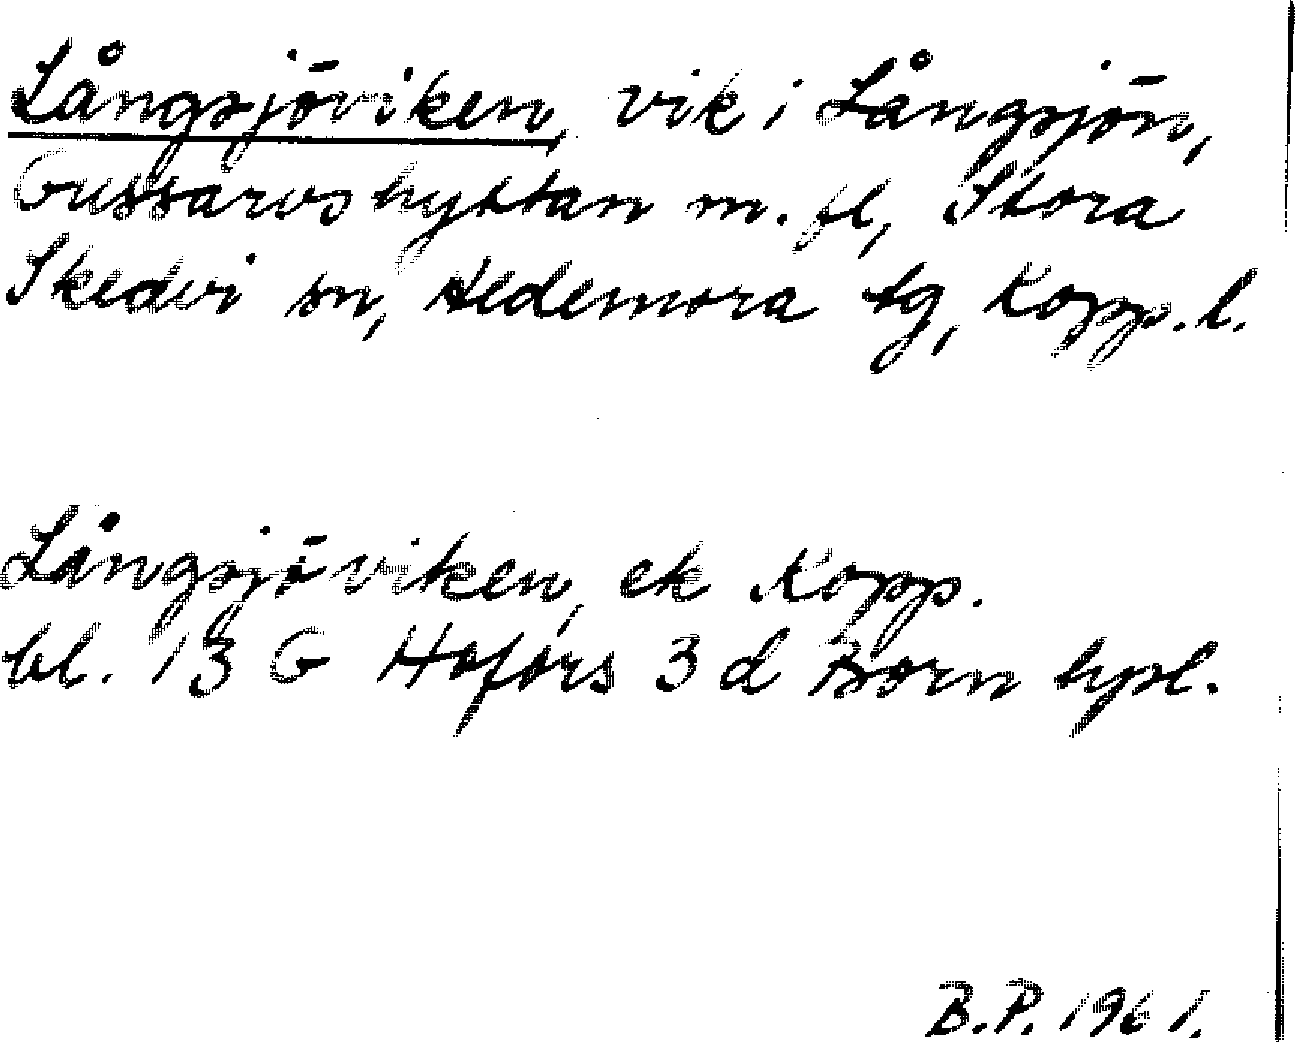 Långsjöviken, vik i Långsjön,
Gussarvshyttan m.fl, Stora
Skedvi sn, Hedemora tg, Kopp. l.
Långsjöviken, ek Kopp.
bl. 13 G Hofors 3 d Born hpl.
B.P. 1961.